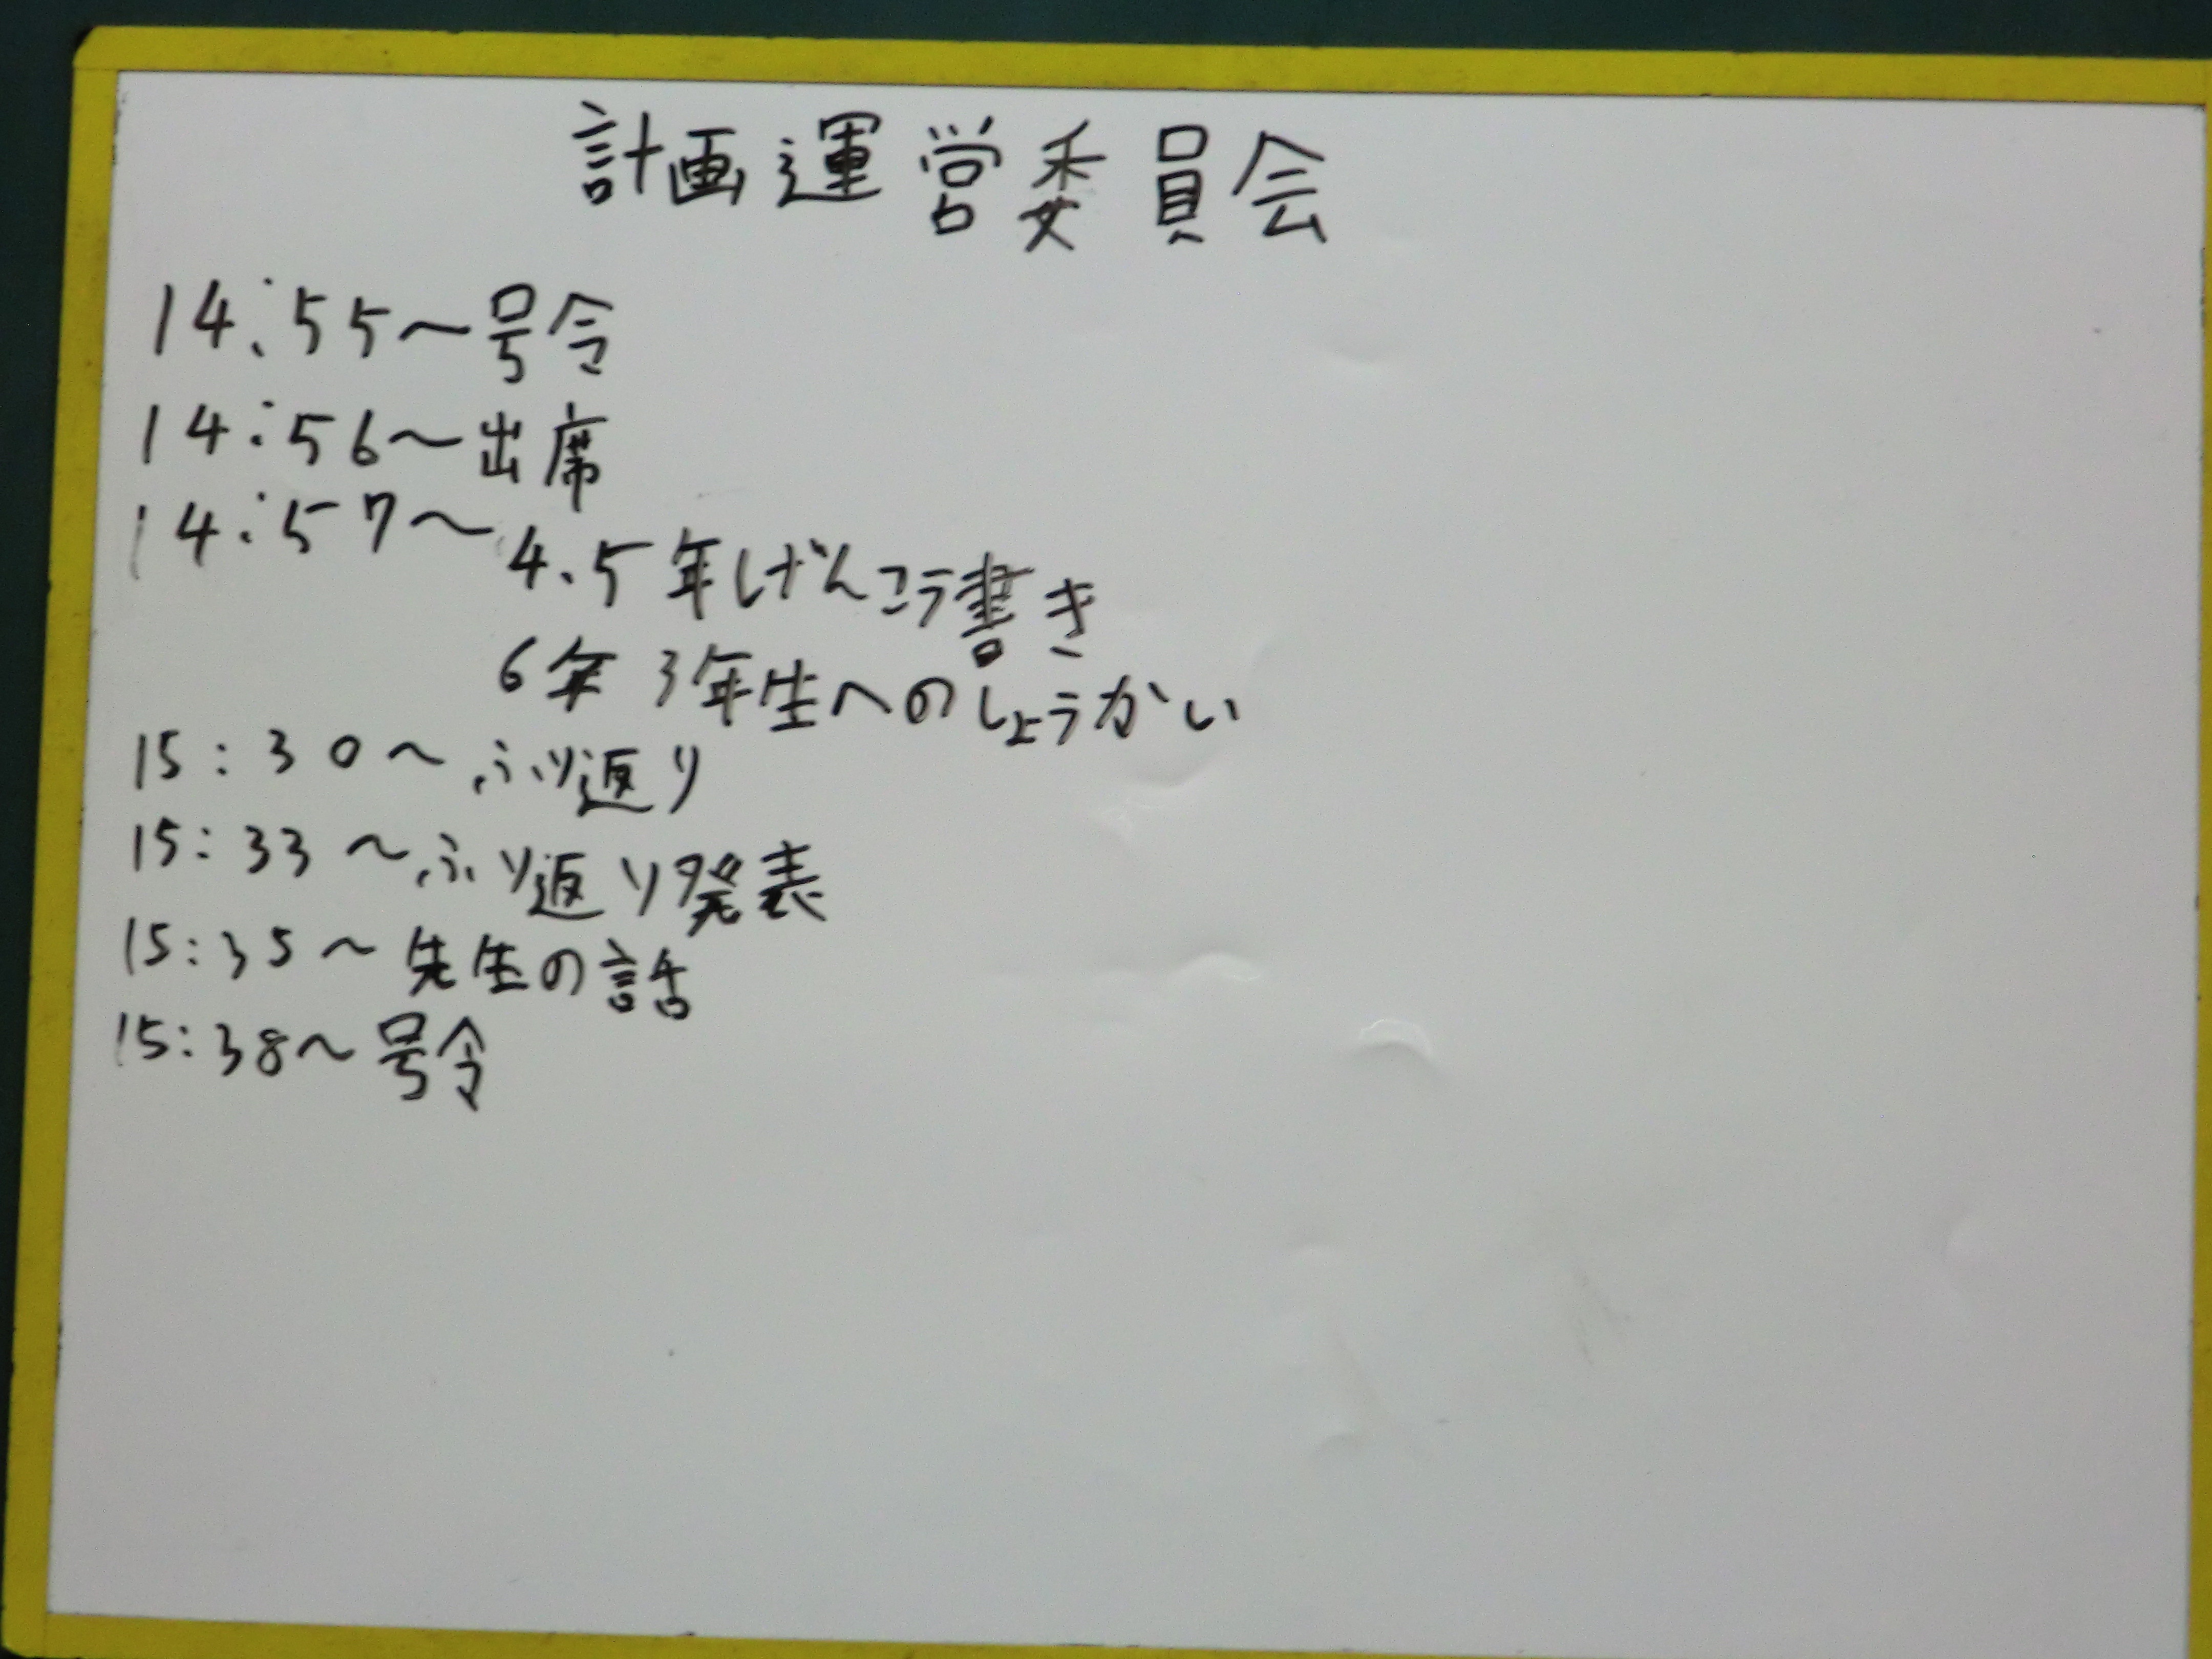 計画運営委員会
14:55～号令
14:56～出席
14:57～4.5年げんこう書き
6年 3年生へのしょうかい
15:30～ふり返り
15:33～ふり返り発表
15:35～先生の話
15:38～号令